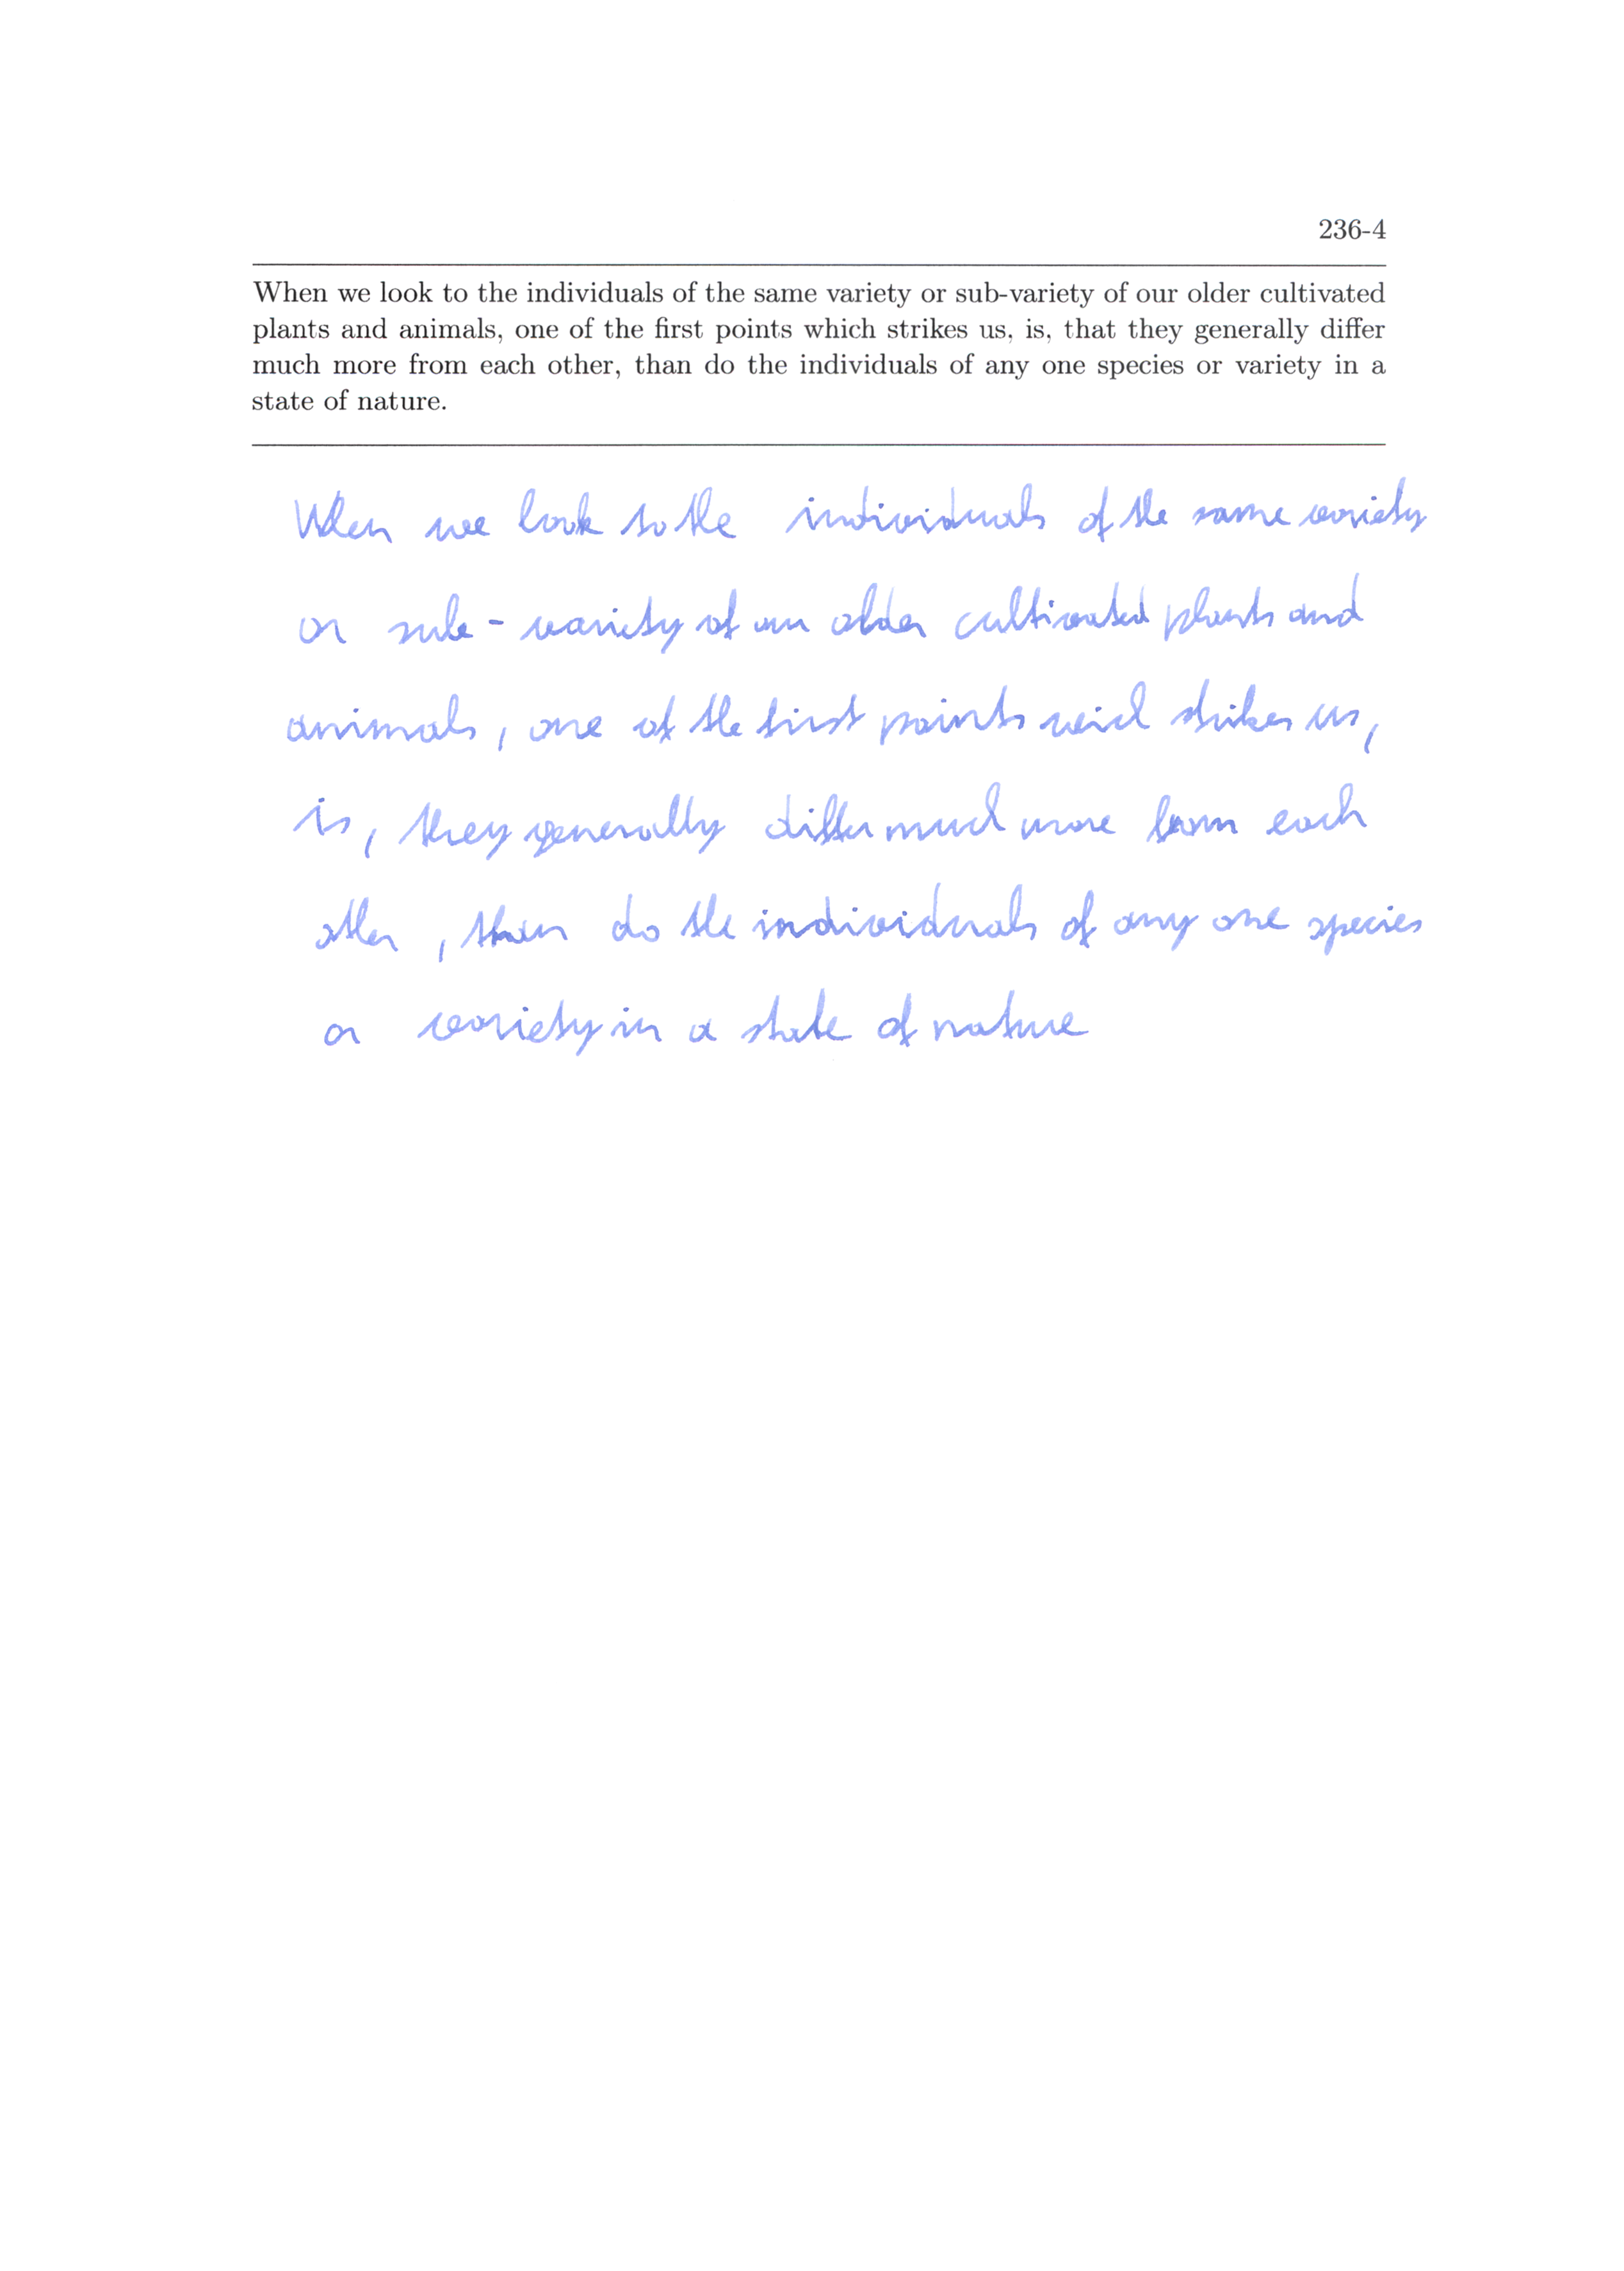 236-4
When we look to the individuals of the same variety or sub-variety of our older cultivated
plants and animals, one of the first points which strikes us, is, that they generally differ
much more from each other, than do the individuals of any one species or variety in a
state of nature.
When we look to the individuals of the same variety
or sub-variety of our older cultivated plants and
animals, one of the first points which strikes us,
is, they generally differ much more from each
other, than do the individuals of any one species
or variety in a state of nature